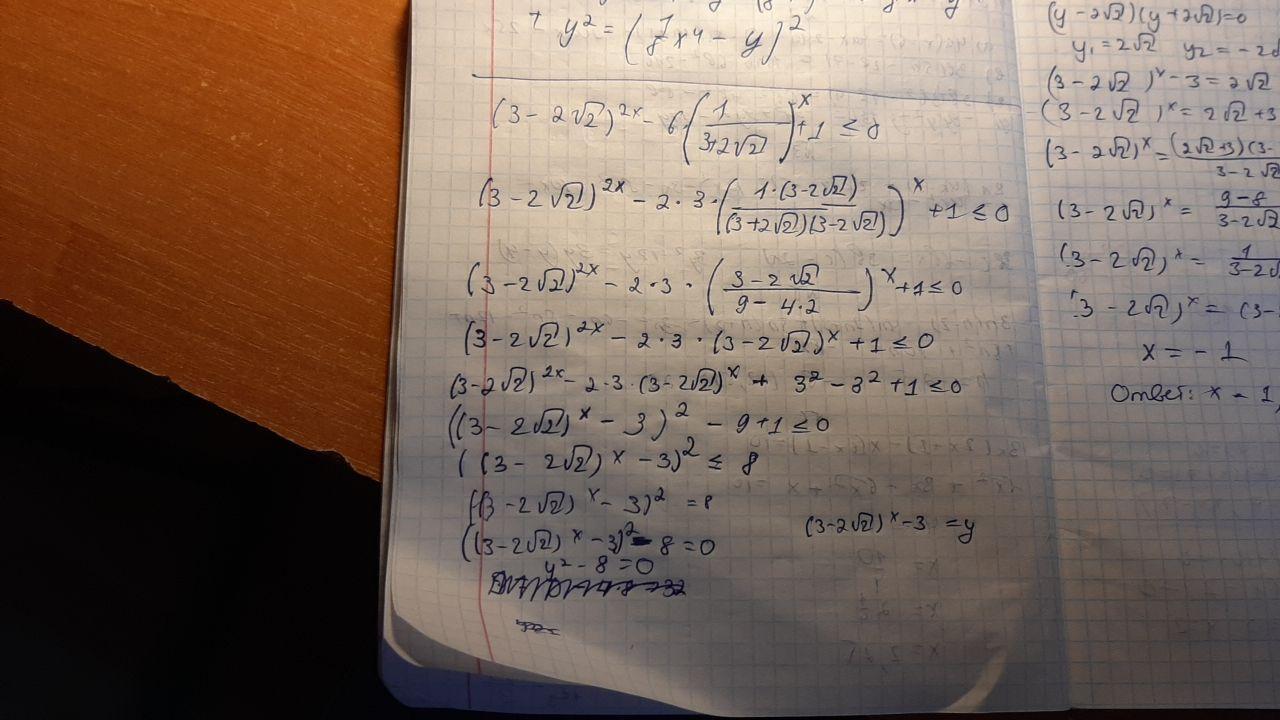 + y² = (7/8 x⁴ - y)²
(3 - 2√2)^2x - 6·(1/(3+2√2))^x + 1 ≤ 0
(3 - 2√2)^2x - 2·3·(1·(3-2√2)/((3+2√2)(3-2√2)))^x + 1 ≤ 0
(3 - 2√2)^2x - 2·3·((3-2√2)/(9-4·2))^x + 1 ≤ 0
(3 - 2√2)^2x - 2·3·(3-2√2)^x + 1 ≤ 0
(3-2√2)^2x - 2·3·(3-2√2)^x + 3² - 3² + 1 ≤ 0
((3-2√2)^x - 3)² - 9+1 ≤ 0
((3-2√2)^x - 3)² ≤ 8
((3-2√2)^x - 3)² = 8
(3-2√2)^x - 3 = y
((3-2√2)^x - 3)² - 8 = 0
y² - 8 = 0
(y - 2√2)(y + 2√2) = 0
y₁ = 2√2 y₂ = - 2
(3 - 2√2)^x - 3 = 2√2
(3 - 2√2)^x = 2√2 + 3
(3 - 2√2)^x = (2√2+3)(3-/3-2√2
(3 - 2√2)^x = (9-8)/(3-2√2
(3 - 2√2)^x = 1/(3-2
3 - 2√2)^x = (3-
x = - 1
Ответ: x - 1,